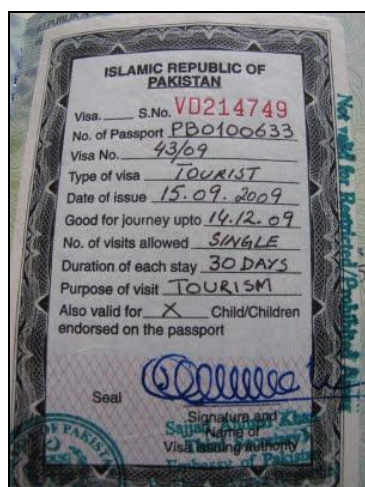 ISLAMIC REPUBLIC OF
PAKISTAN
Visa. S.No. VD214749
No. of Passport PB0100633
Visa No. 43/09
Type of visa TOURIST
Date of issue 15.09.2009
Good for journey upto 14.12.09
No. of visits allowed SINGLE
Duration of each stay 30 DAYS
Purpose of visit TOURISM
Also valid for X Child/Children
endorsed on the passport
Seal
Signature and
Name of
Visa issuing authority
Embassy of Pakistan
Not valid for Restricted/Prohibited Areas